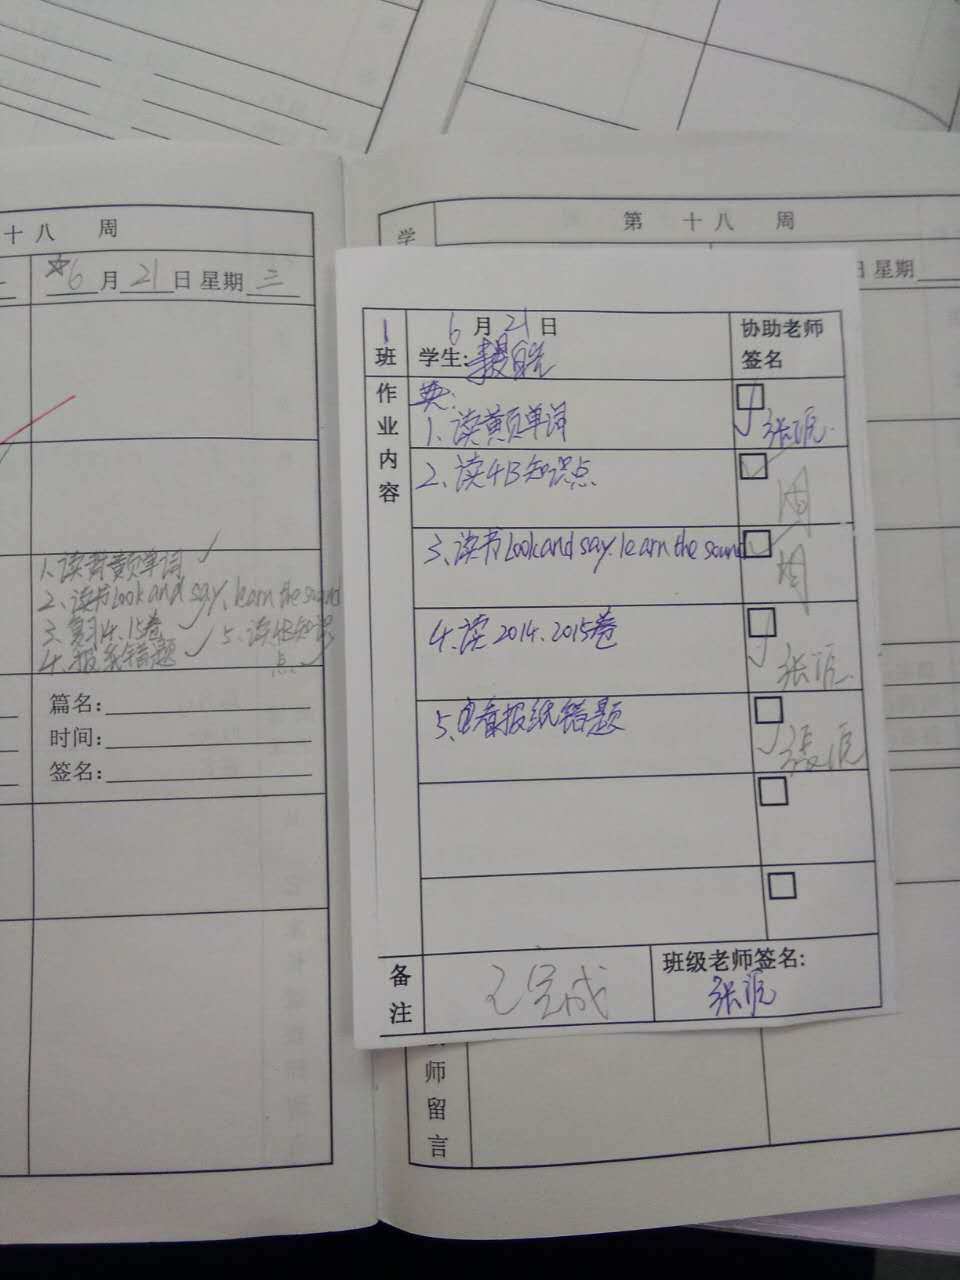 十八 周
6月21日 星期三
1、读黄页单词
2、读书look and say、learn the sound
3、复习14、15卷
4、报纸错题
5、读4B知识点
篇名:
时间:
签名:
第 十八 周
学
日 星期
1班
6月21日
学生:
协助老师
签名
作业内容
英:
1、读黄页单词
2、读4B知识点
3、读书look and say、learn the sound
4、读2014、2015卷
5、看报纸错题
备注
已完成
班级老师签名:
师留言